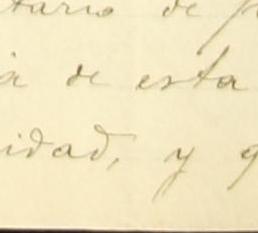 tario de p
ia de esta
idad, y q